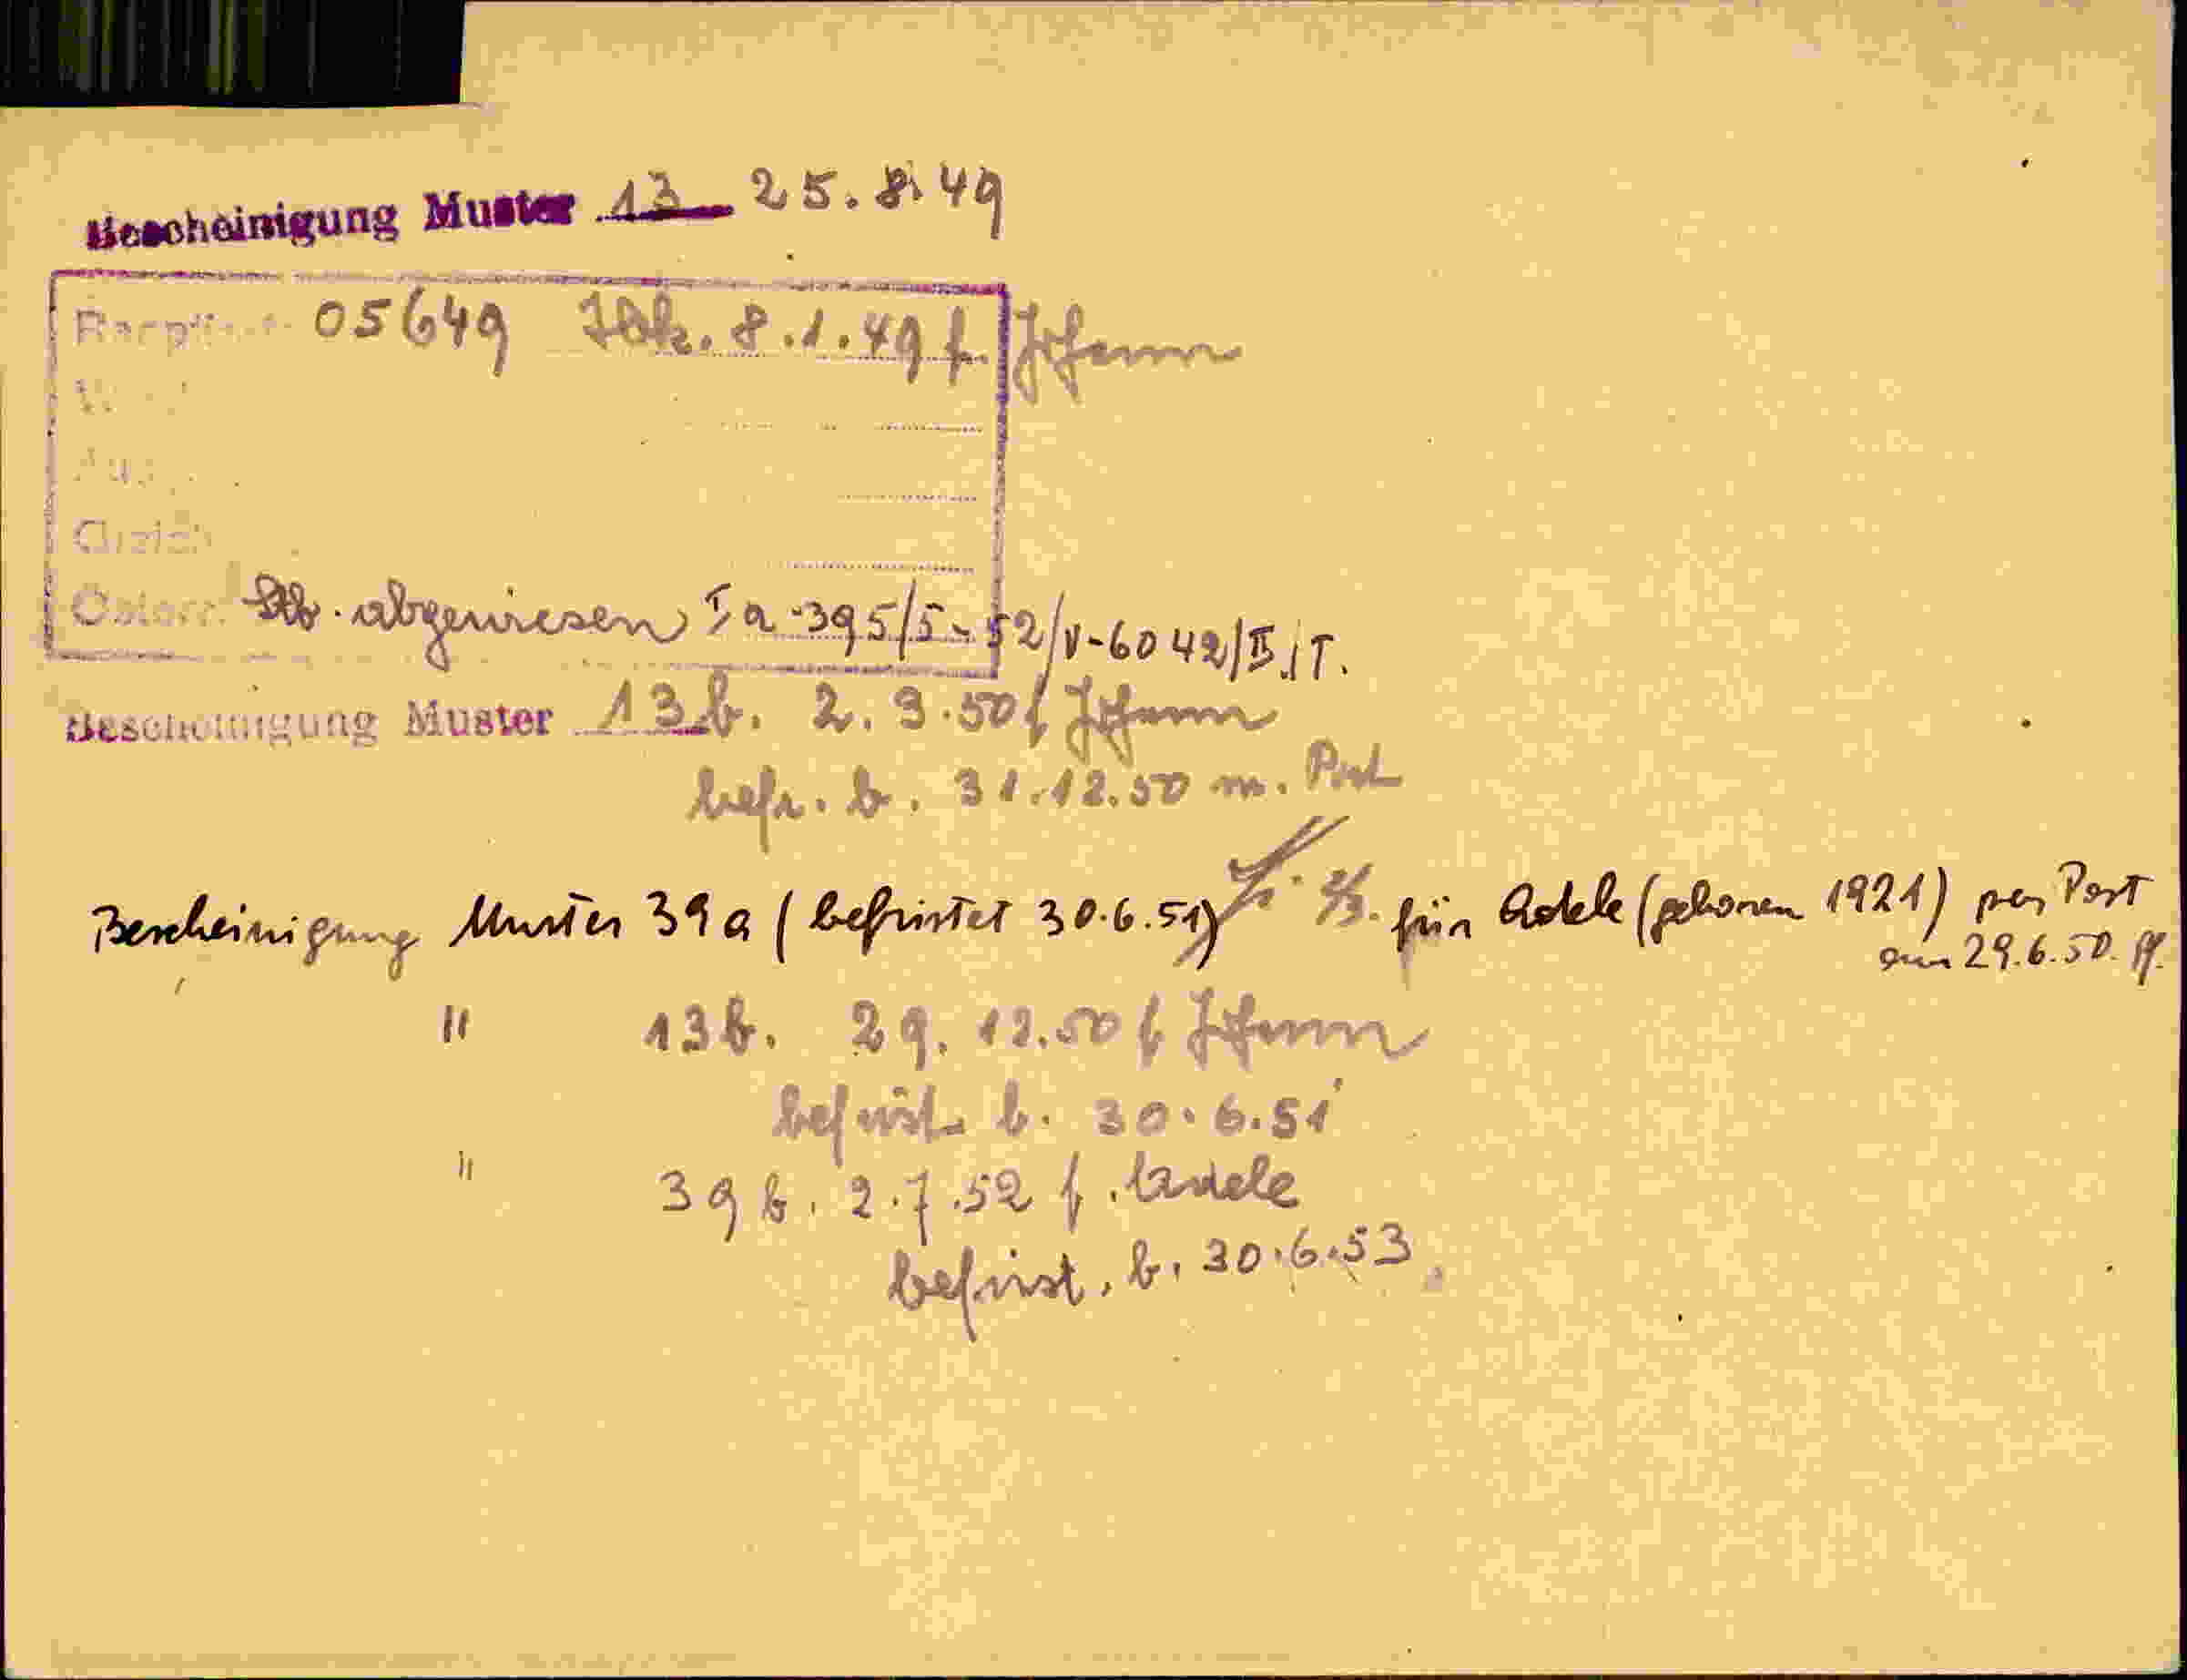 Bescheinigung Muster 13 25.8.49
05649 Idk. 8.1.49 f Johann
Österr. Stb. abgewiesen Ia-395/5-52/V-6042/II./T.
Bescheinigung Muster 13b. 2.3.50 f Johann
befr. b. 31.12.50 m. Post
Bescheinigung Muster 39a (befristet 30.6.51) für Adele (geboren 1921) per Post
am 29.6.50. Pf.
" 13b. 29.12.50 f Johann
befrist. b. 30.6.51
" 39b. 2.7.52 f. Adele
befrist. b. 30.6.53